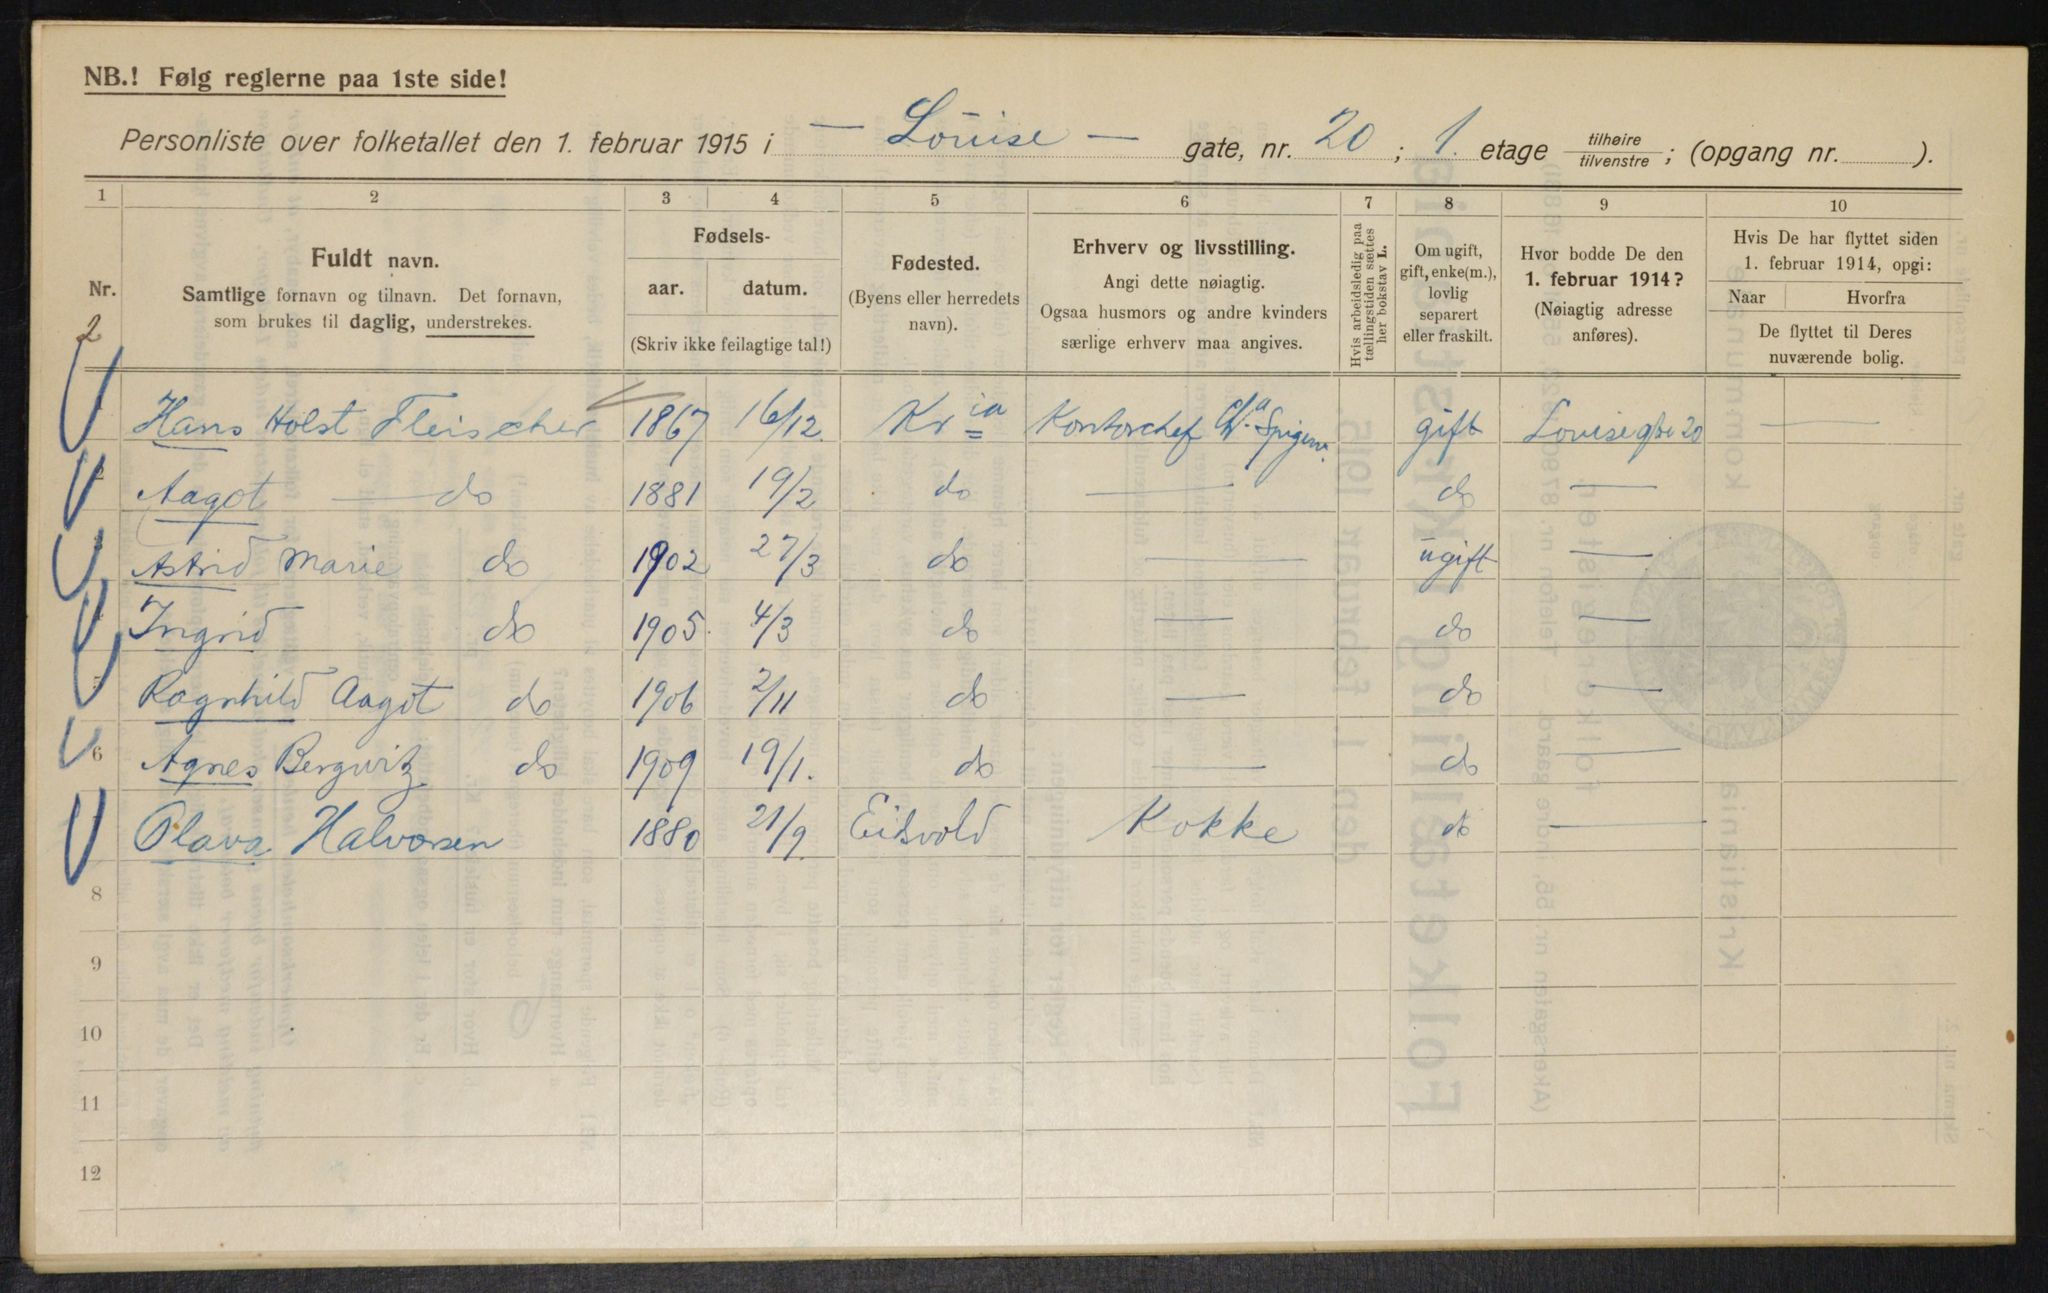 NB.! Følg reglerne paa 1ste side!
Personliste over folketallet den 1. februar 1915 i — Louise — gate, nr. 20; 1. etage tilhøire/tilvenstre; (opgang nr. ).
1 2 3 4 5 6 7 8 9 10
Nr.
2
Fuldt navn.
Samtlige fornavn og tilnavn. Det fornavn,
som brukes til daglig, understrekes.
Fødsels-
aar. datum.
(Skriv ikke feilagtige tal!)
Fødested.
(Byens eller herredets
navn).
Erhverv og livsstilling.
Angi dette nøiagtig.
Ogsaa husmors og andre kvinders
særlige erhverv maa angives.
Hvis arbeidsledig paa
tællingstiden sættes
her bokstav L.
Om ugift,
gift, enke(m.),
lovlig
separert
eller fraskilt.
Hvor bodde De den
1. februar 1914?
(Nøiagtig adresse
anføres).
Hvis De har flyttet siden
1. februar 1914, opgi:
Naar Hvorfra
De flyttet til Deres
nuværende bolig.
Hans Holst Fleischer 1867 16/12 Kr ia Kontorchef gift Louisegte 20 —
2 Aagot — do 1881 19/2 do — do —
3 Astrid Marie do 1902 27/3 do — ugift —
4 Ingrid do 1905 4/3 do — do —
5 Ragnhild Aagot do 1906 2/11 do — do —
6 Agnes Bergwitz do 1909 19/1. do — do —
Olava Halvorsen 1880 21/9 Eidsvold Kokke do —
8
9
10
11
12